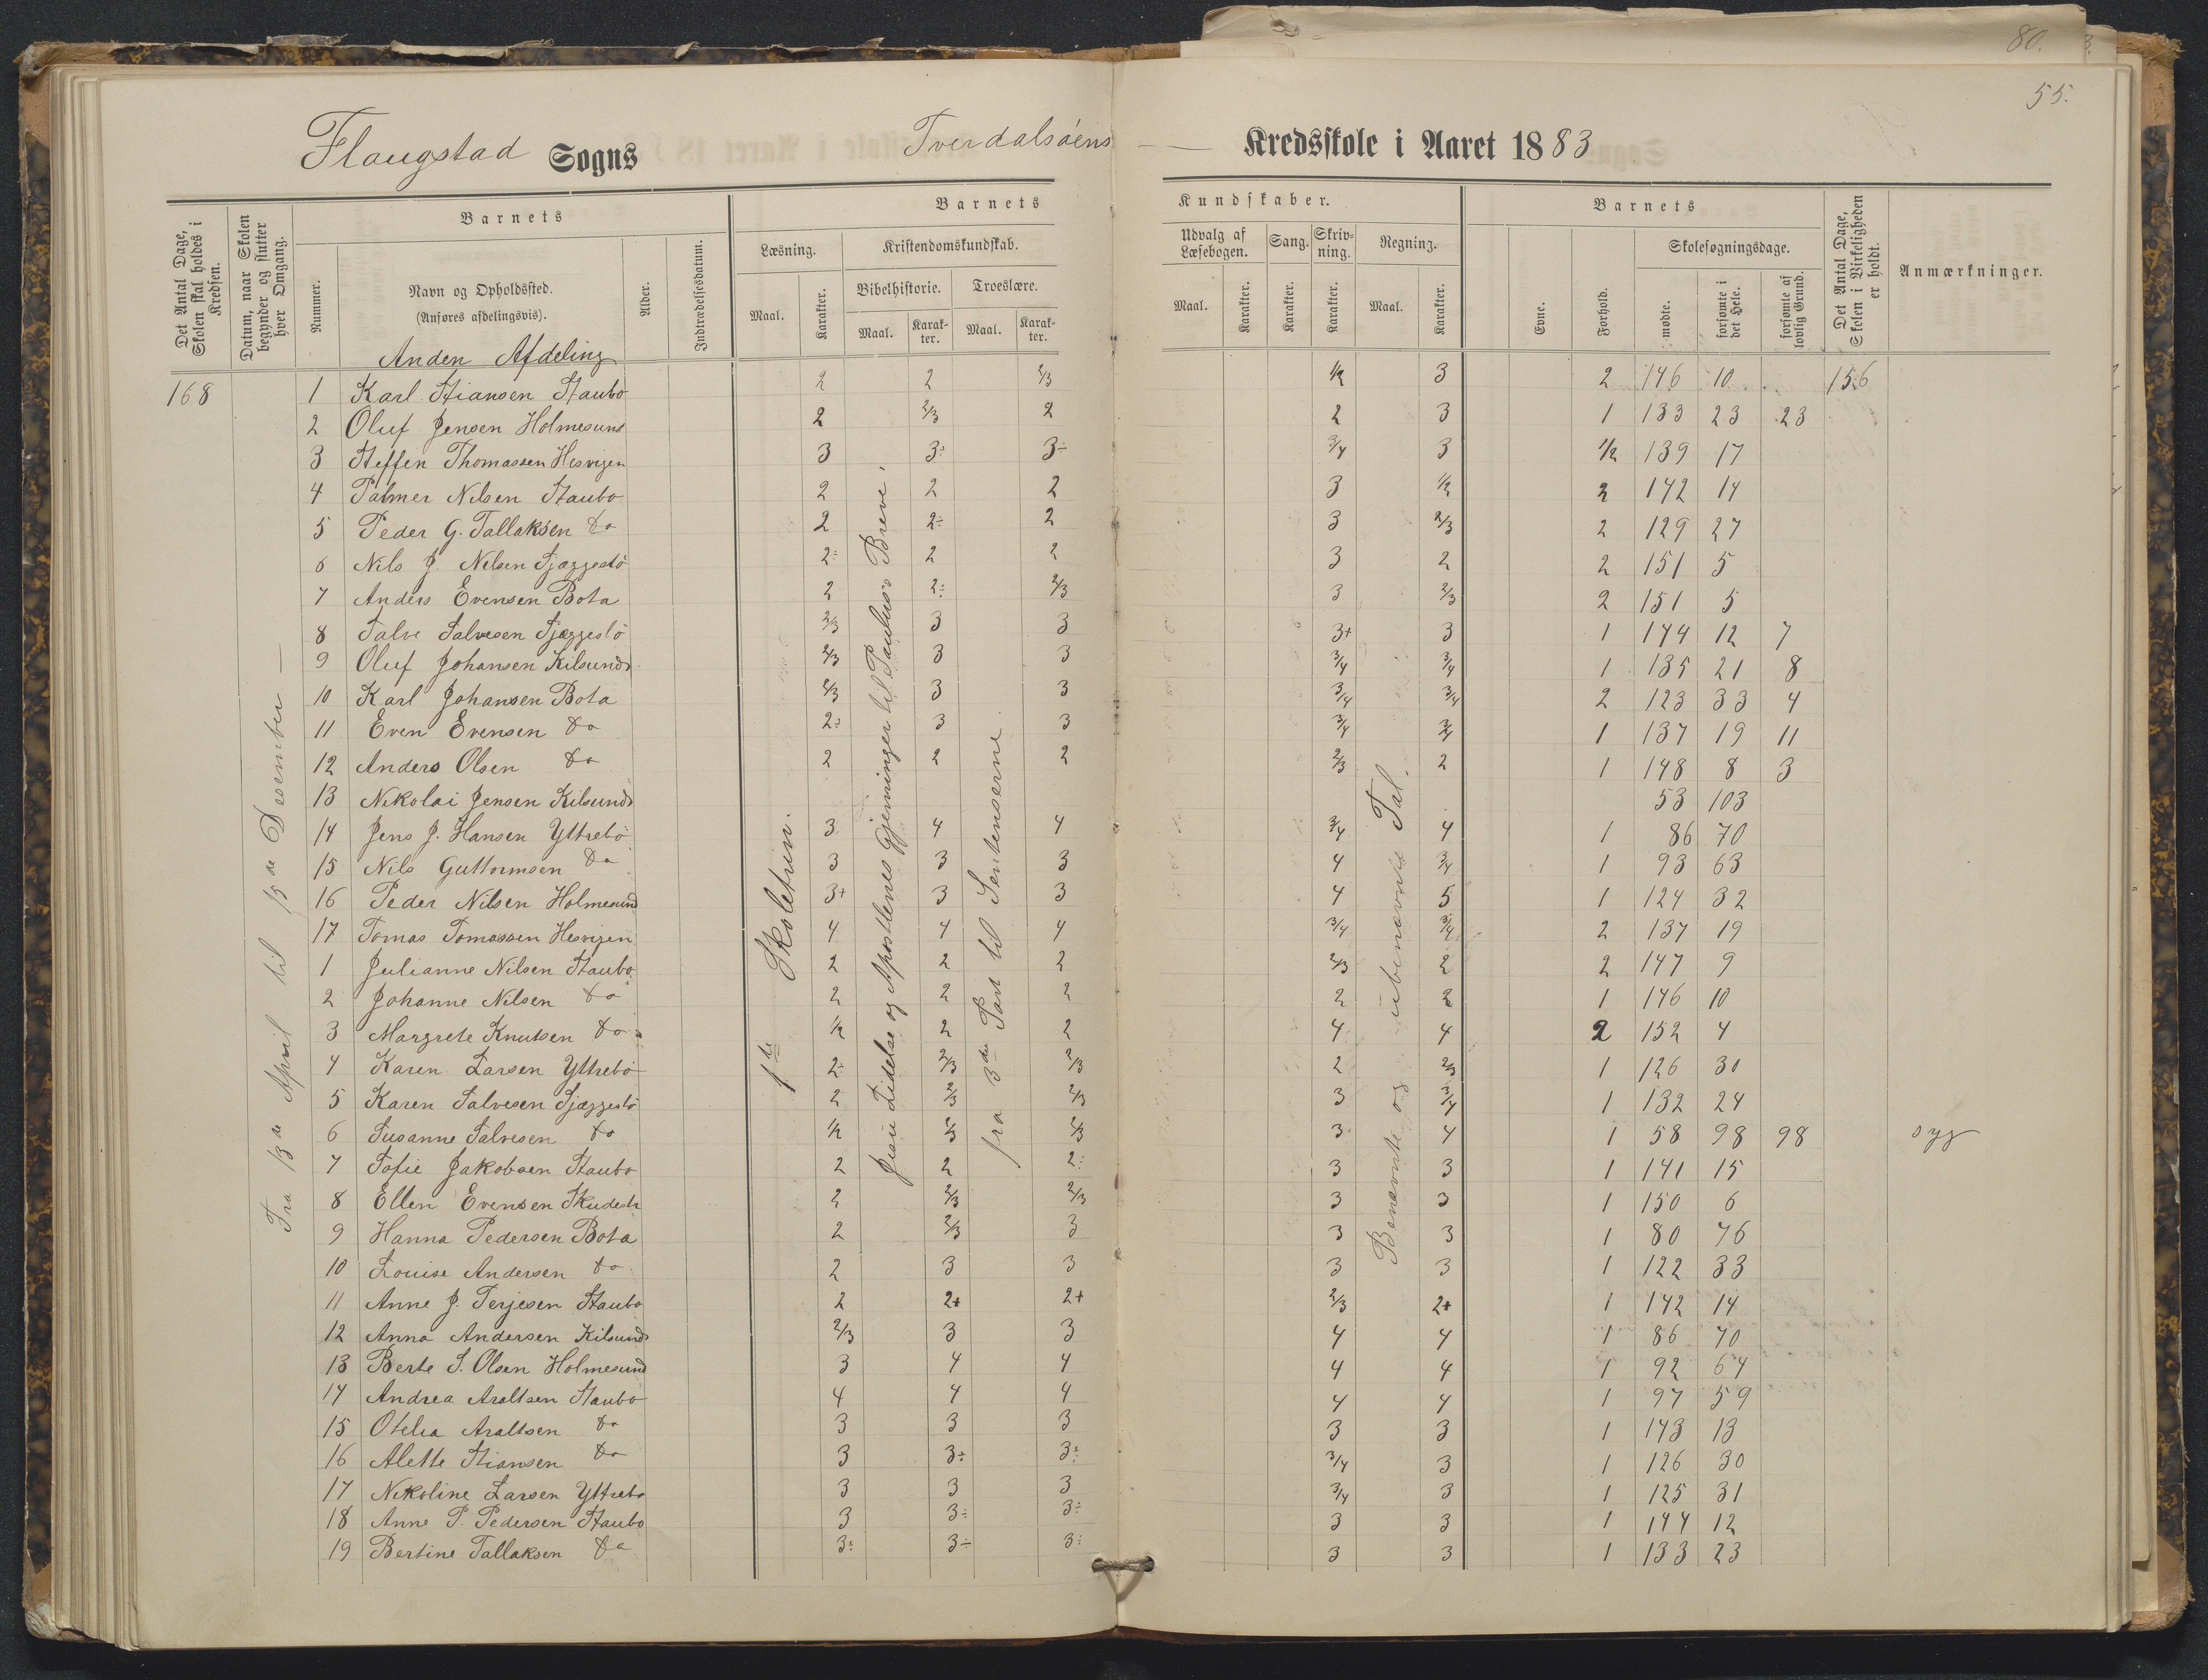 80.
55.
Flaugstad Sogns Tverdalsöens Kredsskole i Aaret 1883
Det Antal Dage, Skolen skal holdes i Kredsen.
Datum, naar Skolen begynder og slutter hver Omgang.
Barnets
Nummer.
Navn og Opholdssted.
(Anføres afdelingsvis).
Alder.
Indtrædelsesdatum.
Barnets Kundskaber.
Læsning. Maal. Karakter.
Kristendomskundskab.
Bibelhistorie. Maal. Karakter.
Troeslære. Maal. Karakter.
Udvalg af Læsebogen. Maal. Karakter.
Sang. Karakter.
Skrivning. Karakter.
Regning. Maal. Karakter.
Barnets
Evne. Forhold.
Skolesøgningsdage.
mødte. forsømte i det Hele. forsømte af lovlig Grund.
Det Antal Dage, Skolen i Virkeligheden er holdt.
Anmærkninger.
Anden Afdeling
168 1 Karl Stiansen Staubo 2 2 2/3 1/2 3 2 146 10 156
2 Oluf Jensen Holmesund 2 2/3 2 2 3 1 133 23 23
3 Steffen Thomassen Hesvigen 3 3÷ 3÷ 3/4 3 1/2 139 17
4 Palmer Nilsen Staubo 2 2 2 3 1/2 2 142 14
5 Peder G. Tallaksen do 2 2÷ 2 3 2/3 2 129 27
6 Nils J. Nilsen Sjæggestö 2÷ 2 2 3 2 2 151 5
7 Anders Evensen Bota 2 2÷ 2/3 3 2/3 2 151 5
8 Salve Salvesen Sjæggestö 2/3 3 3 3+ 3 1 144 12 7
9 Oluf Johansen Kilsund 2/3 3 3 3/4 3/4 1 135 21 8
10 Karl Johansen Bota 2/3 3 3 3/4 3/4 2 123 33 4
11 Even Evensen do 2÷ 3 3 3/4 3/4 1 137 19 11
12 Anders Olsen do 2 2 2 2/3 2 1 148 8 3
13 Nikolai Jensen Kilsund 53 103
14 Jens J. Hansen Yttrebö 3 4 4 3/4 4 1 86 70
15 Nils Guttormsen do 3 3 3 4 3/4 1 93 63
16 Peder Nilsen Holmesund 3+ 3 3 4 5 1 124 32
17 Tomas Tomassen Hesvigen 4 4 4 3/4 3/4 2 137 19
1 Julianne Nilsen Staubo 2 2 2 2/3 2 2 147 9
2 Johanne Nilsen do 2 2 2 2 2 1 146 10
3 Margrete Knutsen do 1/2 2 2 4 4 2 152 4
4 Karen Larsen Yttrebö 2÷ 2/3 2/3 2 2/3 1 126 30
5 Karen Salvesen Sjæggestö 2 2/3 2/3 3 3/4 1 132 24
6 Susanne Salvesen do 1/2 2/3 2/3 3 4 1 58 98 98 syg
7 Sofie Jakobsen Staubo 2 2 2÷ 3 3 1 141 15
8 Ellen Evensen Skudestr 2 2/3 2/3 3 3 1 150 6
9 Hanna Pedersen Bota 2 2/3 3 3 3 1 80 76
10 Louise Andersen do 2 3 3 3 3 1 122 33
11 Anne J. Terjesen Staubo 2 2+ 2+ 2/3 2+ 1 142 14
12 Anna Andersen Kilsund 2/3 3 3 4 4 1 86 70
13 Berte S. Olsen Holmesund 3 4 4 4 4 1 92 64
14 Andrea Araltsen Staubo 4 4 4 4 4 1 97 59
15 Otelia Araltsen do 3 3 3 3 3 1 143 13
16 Alette Stiansen do 3 3÷ 3÷ 3/4 3 1 126 30
17 Nikoline Larsen Yttrebo 3 3 3 3/4 3 1 125 31
18 Anne P. Pedersen Staubo 3 3÷ 3÷ 3 3 1 144 12
19 Bertine Tallaksen do 3÷ 3÷ 3÷ 3 3 1 133 23
Fra 13de April til 15de Desember —
1ste Skoletrin.
Jesu Lidelse og Apostlenes Gjerninger til Paulus's Breve,
fra 3die Part til Sentenserne.
Benævnte og ubenævnte Tal.